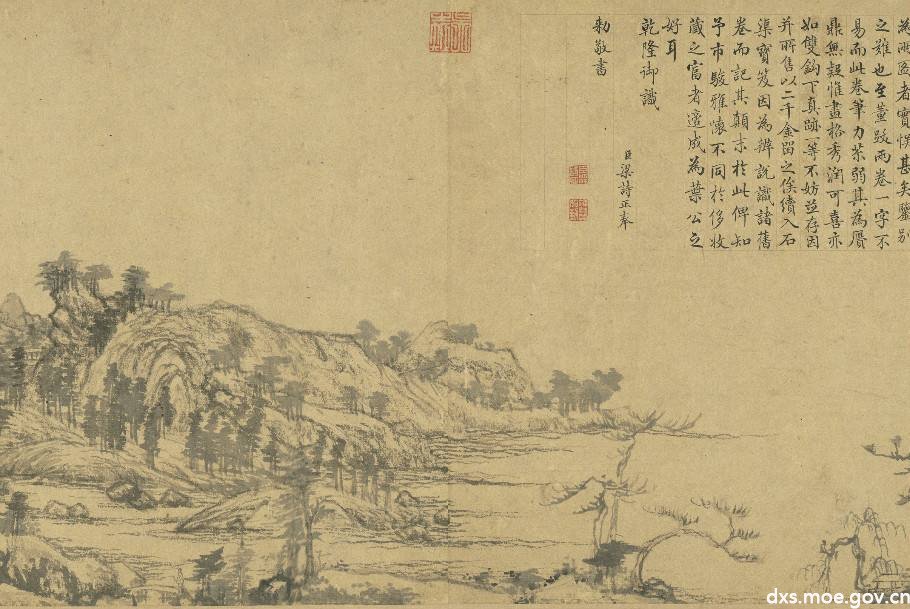 者實悞甚矣鑒別
之難也至董跋兩卷一字不
易而此卷筆力苶弱其為贋
鼎無疑惟畫格秀潤可喜亦
如雙鈎下真跡一等不妨並存因
并所售以二千金留之俟續入石
渠寶笈因為辨說識諸舊
卷而記其顛末於此俾知
予市駿雅懷不同於侈收
藏之富者遂成為葉公之
好耳
乾隆御識
臣梁詩正奉
勅敬書
dxs.moe.gov.cn